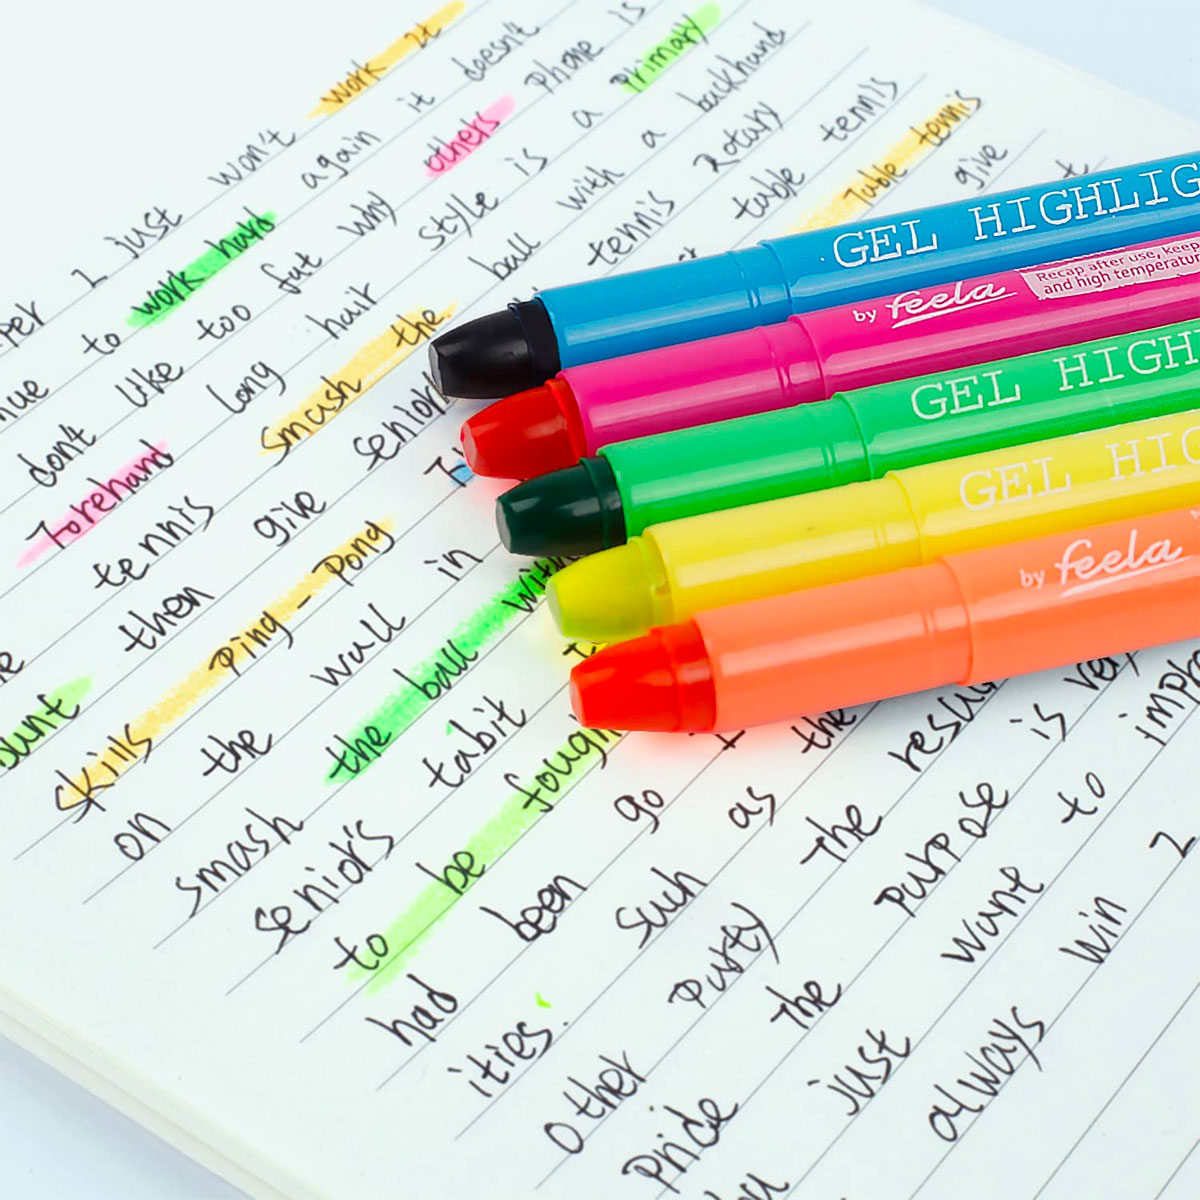 per I just won't work It
nue to work hard again it doesn't
don't like too fat why others phone is
Forehand long hair style is a primary
tennis smash the ball with a backhand
ount then give senior tennis Rotary
skills Ping-Pong table tennis
on the wall in Table tennis
smash the ball with give
senior's tabit
to be fough
had been go
ities. such as the
other party The resul
pride the purpose is very
just want to impro
always win I
GEL HIGHLIG
by feela
Recap after use, keep
and high temperatur
GEL HIGH
GEL HIG
by feela